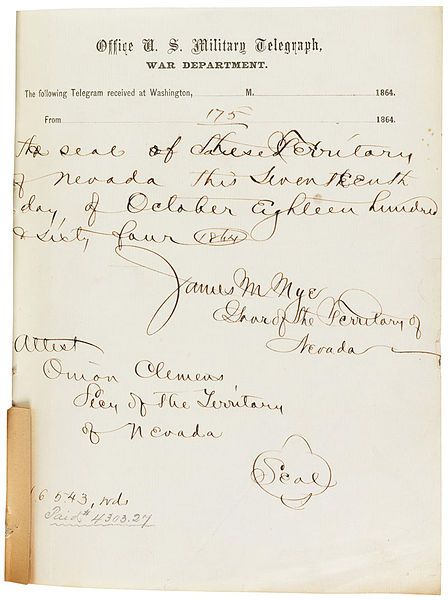 Office U. S. Military Telegraph,
WAR DEPARTMENT.
The following Telegram received at Washington, M. 1864.
From 175 1864.
the seal of the Territory
of Nevada this Seventeenth
day, of October Eighteen hundred
& sixty four 1864
James M Nye
Govr of the Territory of
Nevada
Attest
Orion Clemens
Secy of the Territory
of Nevada
Seal
16 543, wds
Paid $ 4303.27